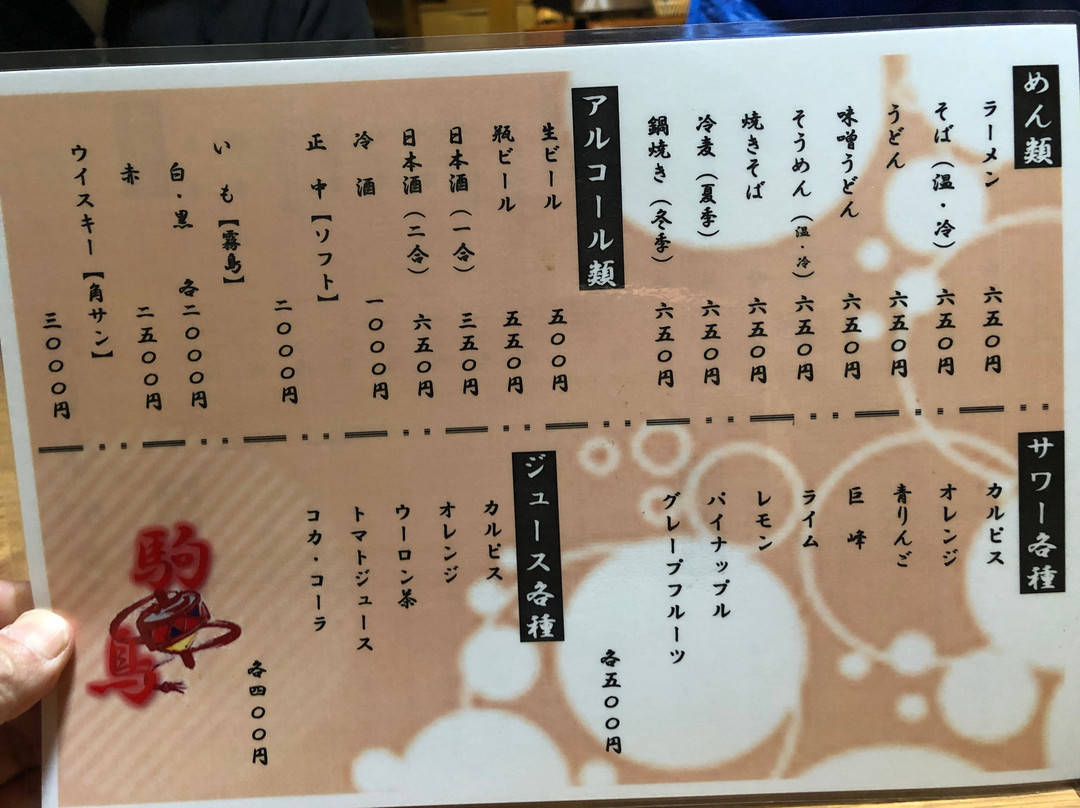 めん類
ラーメン 六五〇円
そば（温・冷） 六五〇円
うどん 六五〇円
味噌うどん 六五〇円
そうめん（温・冷） 六五〇円
焼きそば 六五〇円
冷麦（夏季） 六五〇円
鍋焼き（冬季） 六五〇円
アルコール類
生ビール 五〇〇円
瓶ビール 五五〇円
日本酒（一合） 三五〇円
日本酒（二合） 六五〇円
冷酒 一〇〇〇円
正中【ソフト】 二〇〇〇円
いも【霧島】
白・黒 各二〇〇〇円
赤 二五〇〇円
ウイスキー【角サン】 三〇〇〇円
サワー各種
カルピス
オレンジ
青りんご
巨峰
ライム
レモン
パイナップル
グレープフルーツ
各五〇〇円
ジュース各種
カルピス
オレンジ
ウーロン茶
トマトジュース
コカ・コーラ
各四〇〇円
駒鳥